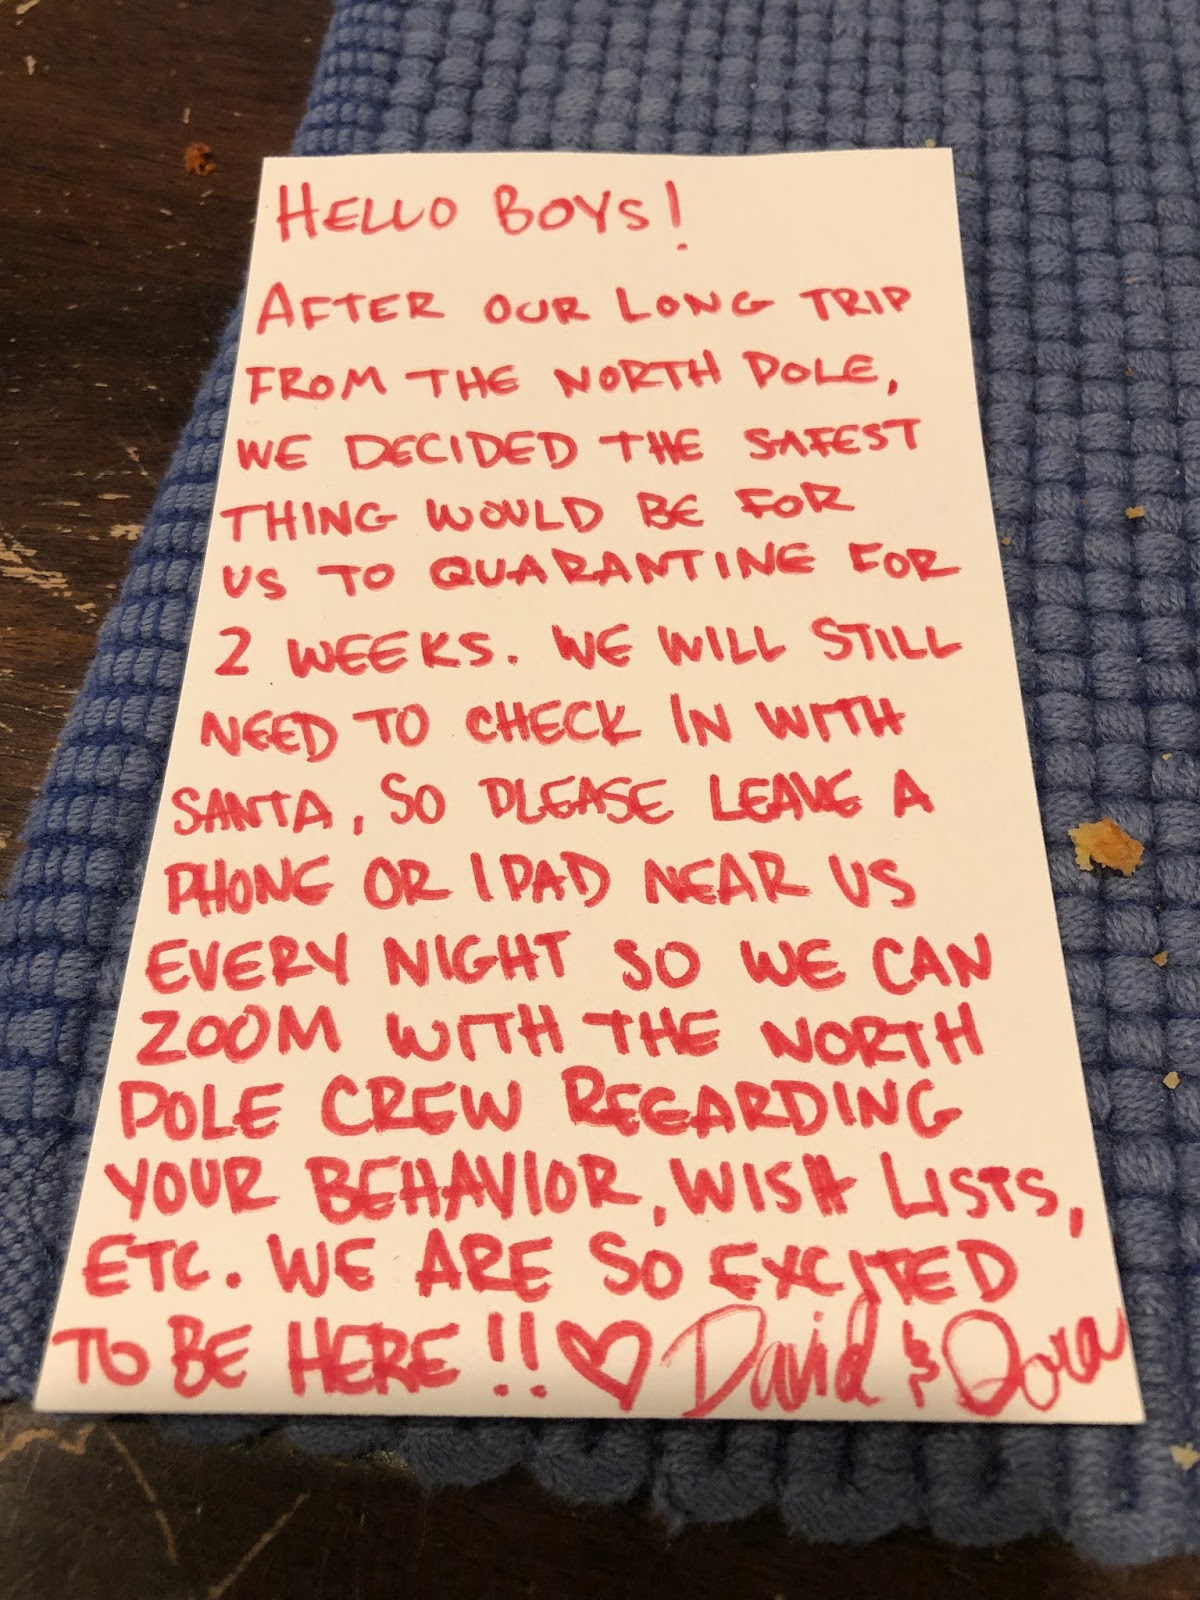 HELLO BOYS!
AFTER OUR LONG TRIP
FROM THE NORTH POLE,
WE DECIDED THE SAFEST
THING WOULD BE FOR
US TO QUARANTINE FOR
2 WEEKS. WE WILL STILL
NEED TO CHECK IN WITH
SANTA, SO PLEASE LEAVE A
PHONE OR IPAD NEAR US
EVERY NIGHT SO WE CAN
ZOOM WITH THE NORTH
POLE CREW REGARDING
YOUR BEHAVIOR, WISH LISTS,
ETC. WE ARE SO EXCITED
TO BE HERE!! ♡ David & Dora